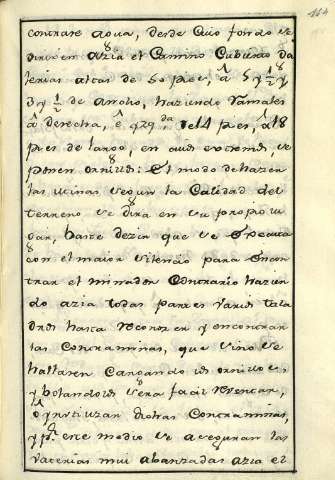 164
contrare agua, desde cuio fondo se
dirixen azia el Camino Cubierto Ga
lerias altas de 50 pies, â 5 y ½ y
3 y ½ de Ancho, haziendo Ramales
â derecha, ê yzqda, de 14 pies, â 18
pies de largo, en cuios extremos, se
ponen ornillos: El modo de hazer
las minas segun la Calidad del
terreno se dira en su propio lu
gar, baste dezir que se executa
con el maior silencio para encon
trar el minador Contrario hazien
do azia todas partes varios tala
dros hasta reconozer y encontrar
las Contraminas, que sino se
hallaren Cargando los ornillos
y bolandolos sera facil reventar,
o ynutilizar dichas Contraminas,
y pr. este medio se aseguran las
vaterias mui abanzadas azia el